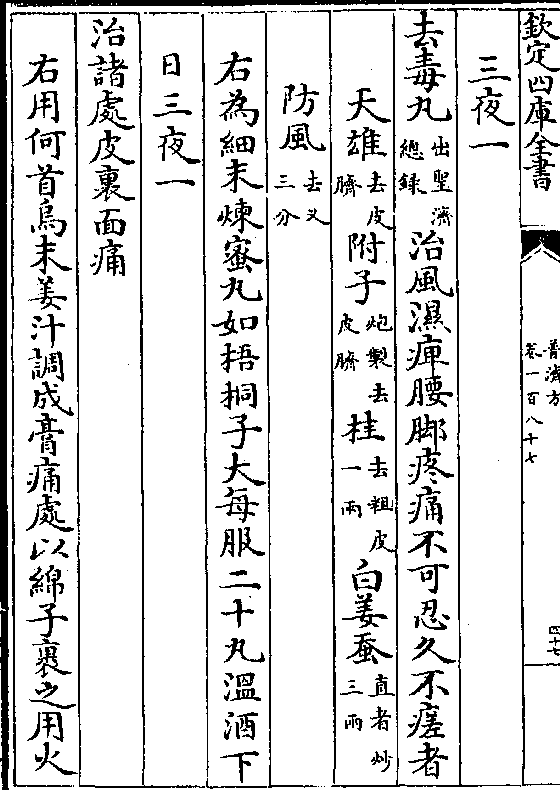 欽定四庫全書
普濟方
卷一百八十七
四十七
三夜一
去毒丸出聖濟總録治風濕痺腰脚疼痛不可忍久不瘥者
天雄去皮臍附子炮製去皮臍桂去粗皮一兩白姜蚕直者炒三兩
防風去叉三分
右為細末煉蜜丸如梧桐子大每服二十丸溫酒下
日三夜一
治諸處皮裏面痛
右用何首烏末姜汁調成膏痛處以綿子裹之用火